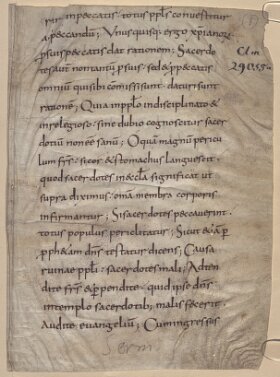 rit in peccatis · totus ppłs convertitur
a peccandū ; Unusquisq; ergo xpianor̄
p suis peccatis dat rationem ; Sacerdo
tes aut̄ non tantū p suis · sed & p peccatis
omniū quasibi comissi sunt · daturi sunt
rationē ; Quia in pplo indisciplinato &
inrelegioso · sine dubio cognoscitur sacer
dotiū non eē sanū ; O quā magnū pericu
lum fr̄s · sicor & stomachus languescit ·
quod sacerdotes in eccla significat ut
supra diximus · omā membra corporis
infirmantur ; Si sacerdotes peccaverint ·
totus populus periclitatur ; Sicut & iā p
pph&am dn̄s testatur dicens ; Causa
ruinae ppli · sacerdotes mali ; Adten
dite fr̄s & perpendite · quid ipse dn̄s
in templo sacerdotib; malis fecerit ·
Audite evangeliū ; Cum ingressus
Clm
29055a
Serm